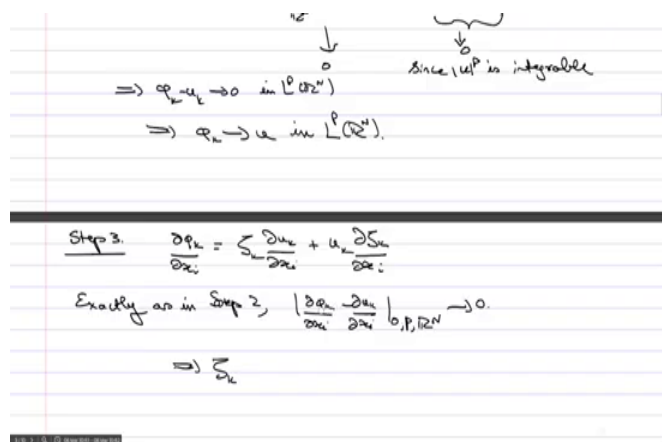 ↓ ↓
0 0
since |u|^p is integrable
⇒ φ_k - u_k → 0 in L^p(ℝ^N)
⇒ φ_k → u in L^p(ℝ^N).
Step 3. ∂φ_k/∂x_i = ζ_k ∂u_k/∂x_i + u_k ∂ζ_k/∂x_i
Exactly as in Step 2, |∂φ_k/∂x_i - ∂u_k/∂x_i|_{0,p,ℝ^N} → 0.
⇒ ζ_k